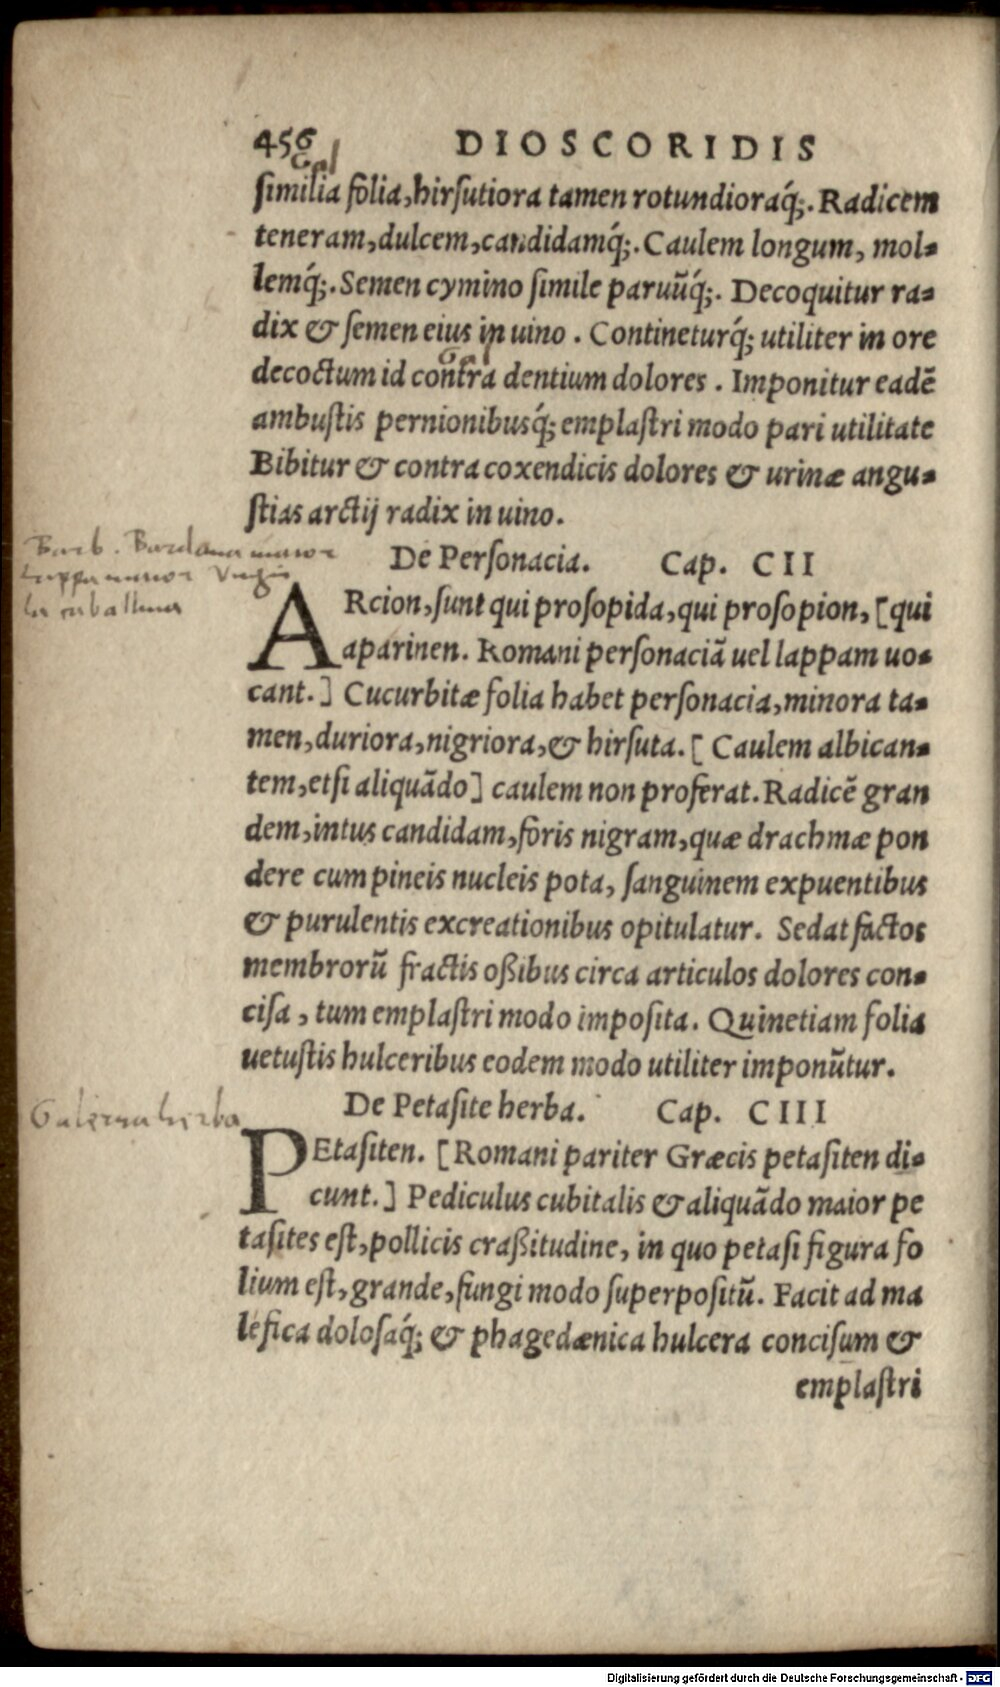 456 DIOSCORIDIS
Gal
similia folia, hirsutiora tamen rotundioraq́;. Radicem
teneram, dulcem, candidamq́;. Caulem longum, mol-
lemq́;. Semen cymino simile paruũq́;. Decoquitur ra-
dix & semen eius in uino . Contineturq́; utiliter in ore
decoctum id contra dentium dolores . Imponitur eadẽ
ambustis pernionibusq́; emplastri modo pari utilitate
Bibitur & contra coxendicis dolores & urinæ angu-
stias arctij radix in uino.
Barb. Bardana maior
Lappa maior
De Personacia. Cap. CII
ARcion, sunt qui prosopida, qui prosopion, [qui
aparinen. Romani personaciã uel lappam uo-
cant.] Cucurbitæ folia habet personacia, minora ta-
men, duriora, nigriora, & hirsuta. [ Caulem albican-
tem, etsi aliquãdo] caulem non proferat. Radicẽ gran
dem, intus candidam, foris nigram, quæ drachmæ pon
dere cum pineis nucleis pota, sanguinem expuentibus
& purulentis excreationibus opitulatur. Sedat factos
membrorũ fractis oßibus circa articulos dolores con-
cisa , tum emplastri modo imposita. Quinetiam folia
uetustis hulceribus eodem modo utiliter imponũtur.
De Petasite herba. Cap. CIII
herba
PEtasiten. [Romani pariter Græcis petasiten di-
cunt.] Pediculus cubitalis & aliquãdo maior pe
tasites est, pollicis craßitudine, in quo petasi figura fo
lium est, grande, fungi modo superpositũ. Facit ad ma
lefica dolosaq́; & phagedænica hulcera concisum &
emplastri
Digitalisierung gefördert durch die Deutsche Forschungsgemeinschaft - DFG